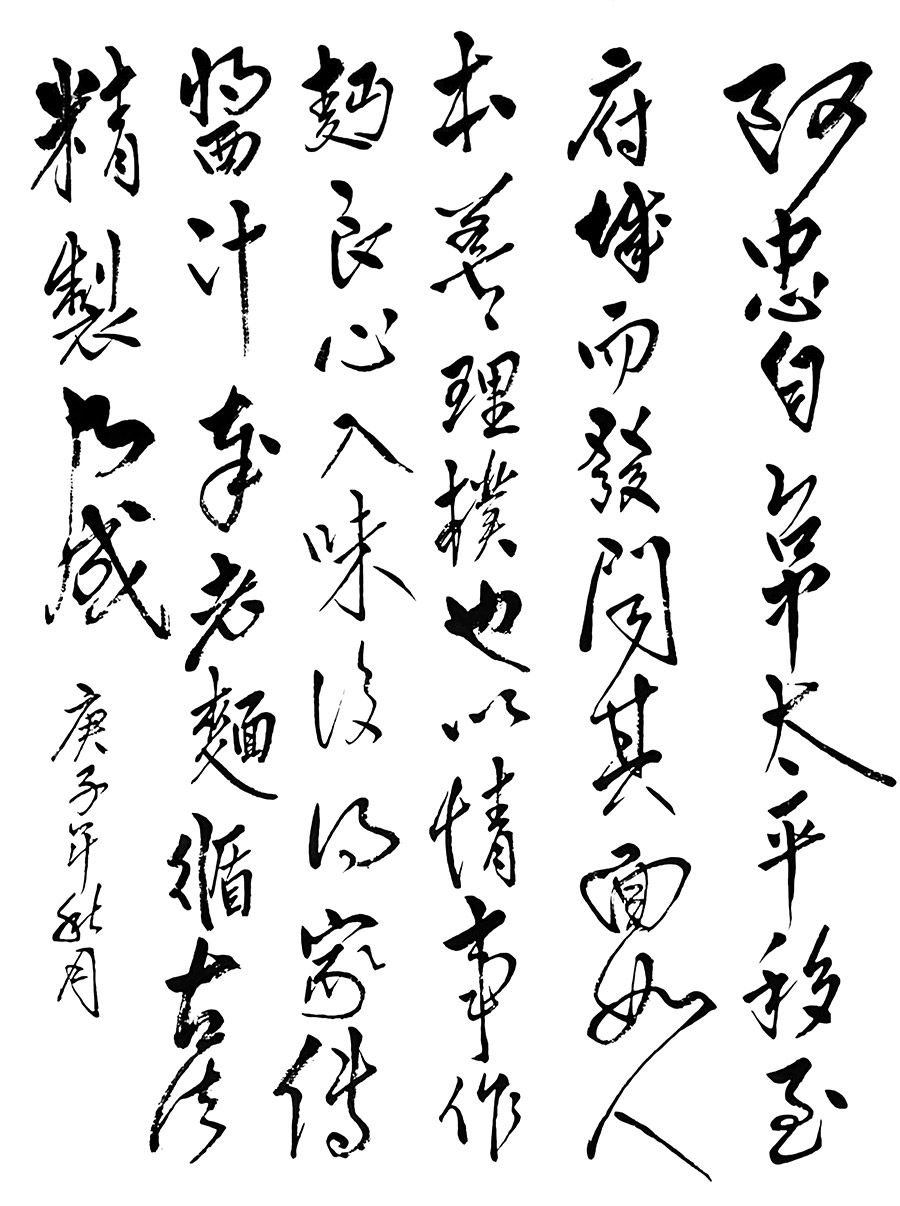 阿忠自台中太平移至
府城而發聞其面如人
本善〻理樸也以情事作
麪良心入味後得家傳
醬汁奉老麵循古法
精製乃成 庚子年秋月